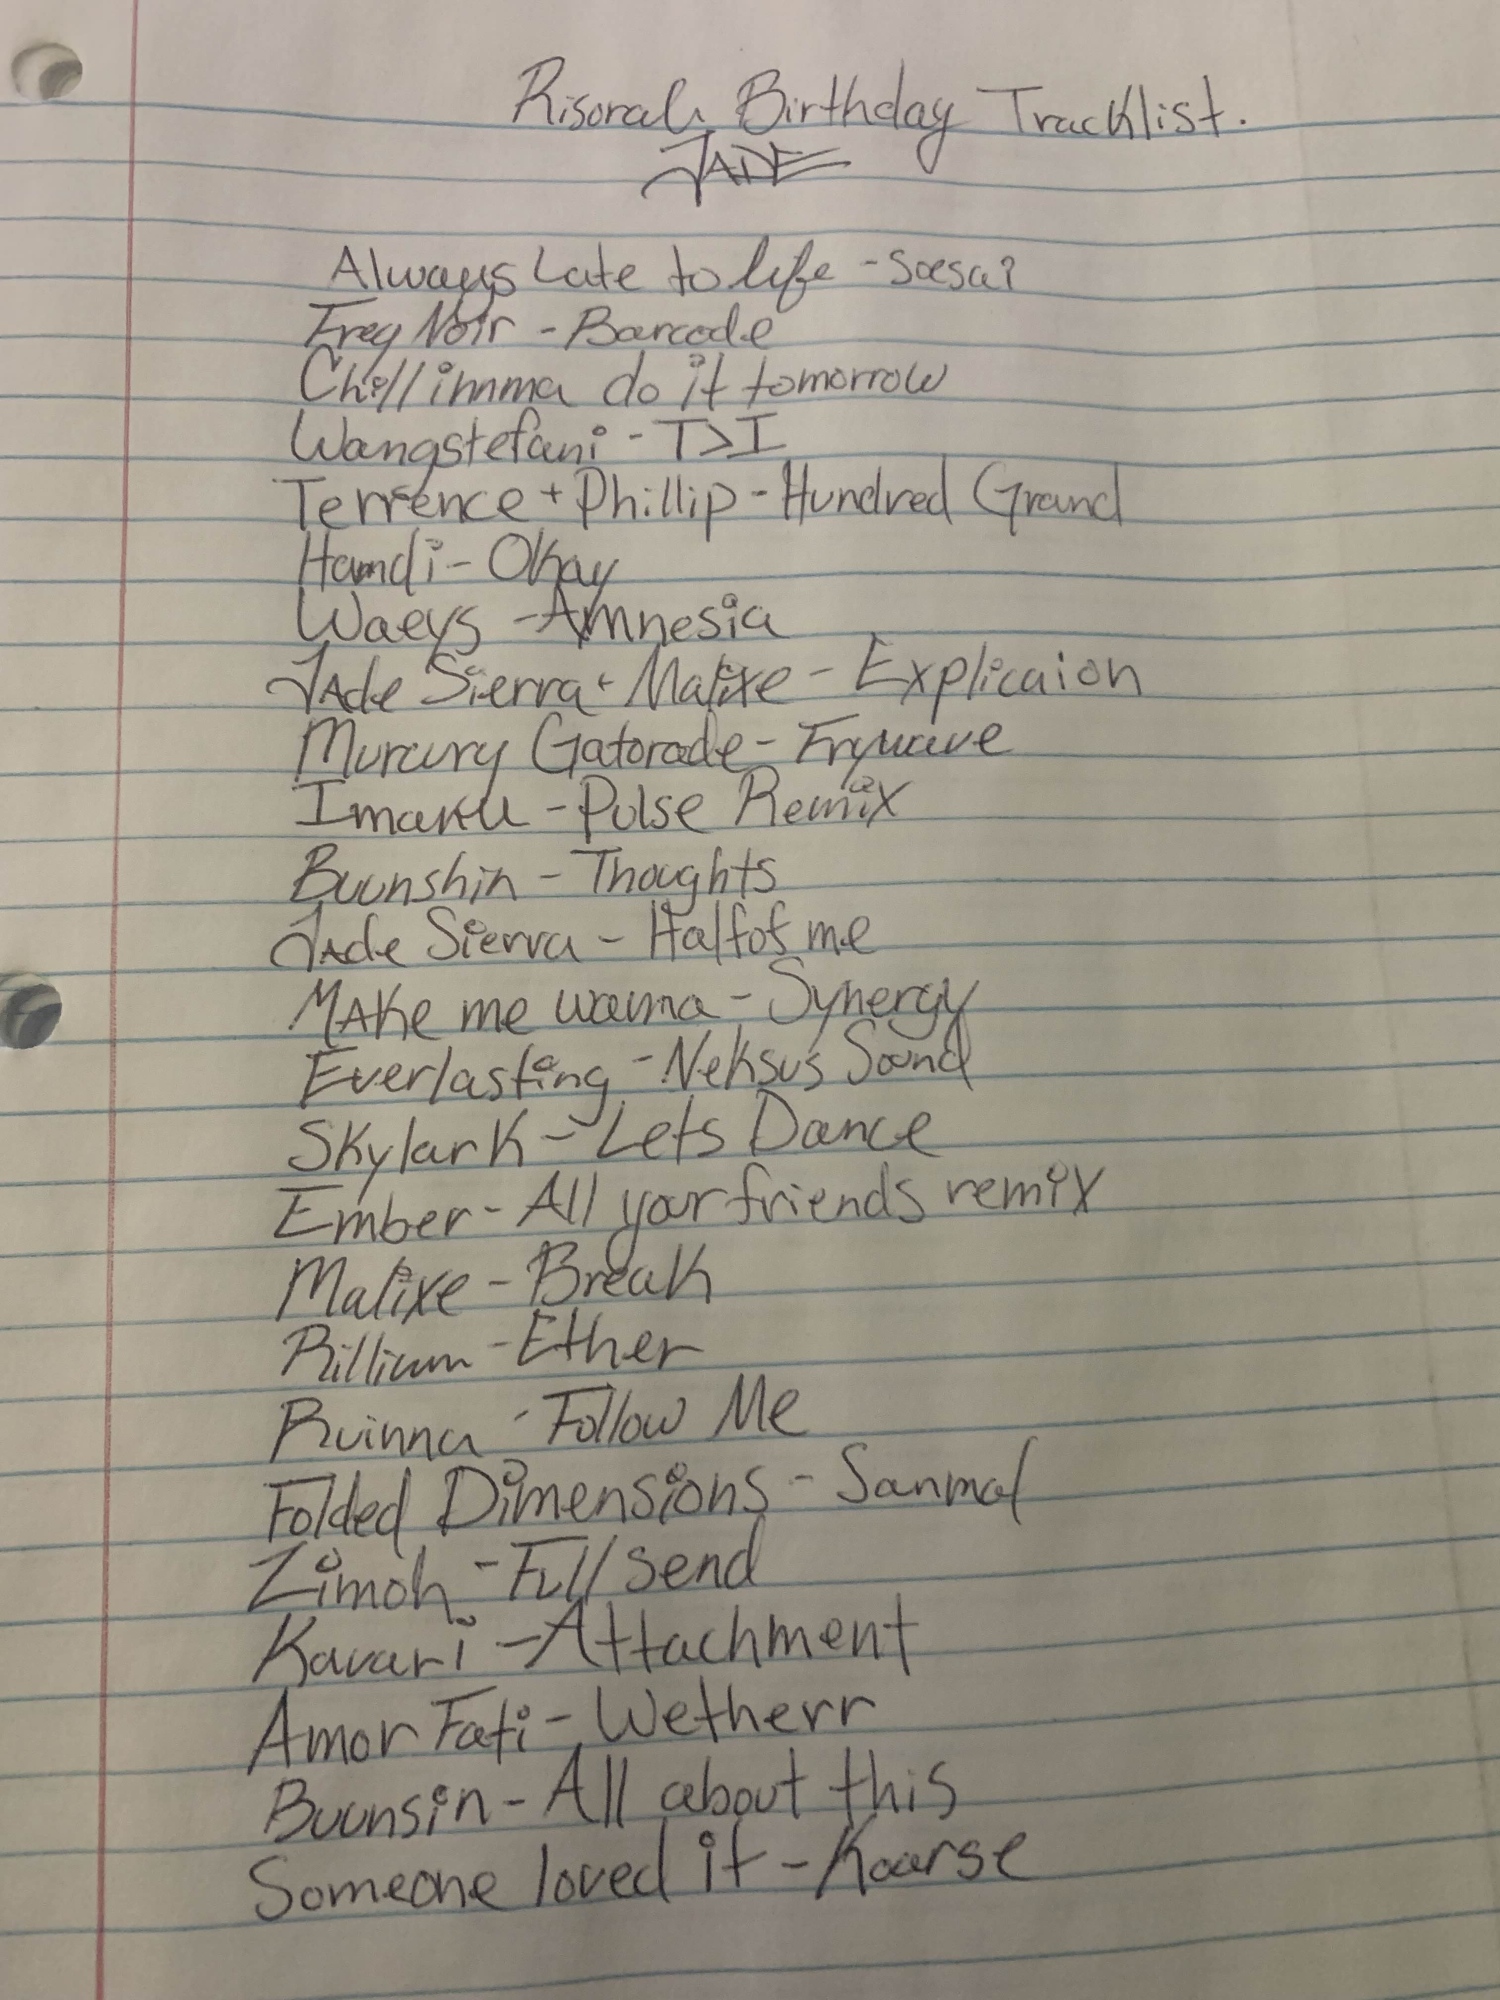 Risorah Birthday Tracklist.
JADE
Always Late to life - Saesar
Freq Noir - Barcode
Chill imma do it tomorrow
Wangstefani - T>I
Terrence + Phillip - Hundred Grand
Hamdi - Okay
Waeys - Amnesia
Jade Sierra + Malixe - Explicaion
Murcury Gatorade - Frywave
Imanu - Pulse Remix
Buunshin - Thoughts
Jade Sierra - Half of me
Make me wanna - Synergy
Everlasting - Neksus Sound
Skylark - Lets Dance
Ember - All your friends remix
Malixe - Break
Rillium - Ether
Ruinna - Follow Me
Folded Dimensions - Sanmal
Zimoh - Full send
Kavari - Attachment
Amor Fati - Wetherr
Buunsin - All about this
Someone loved it - Koarse